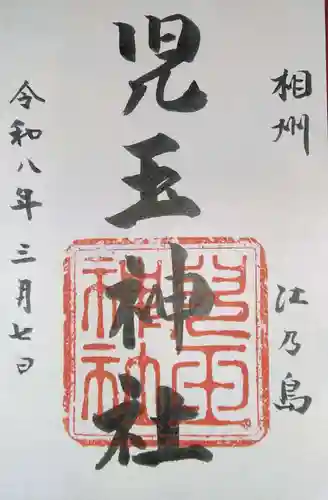 相州
江乃島
児玉神社
令和八年三月七日
児玉
神社